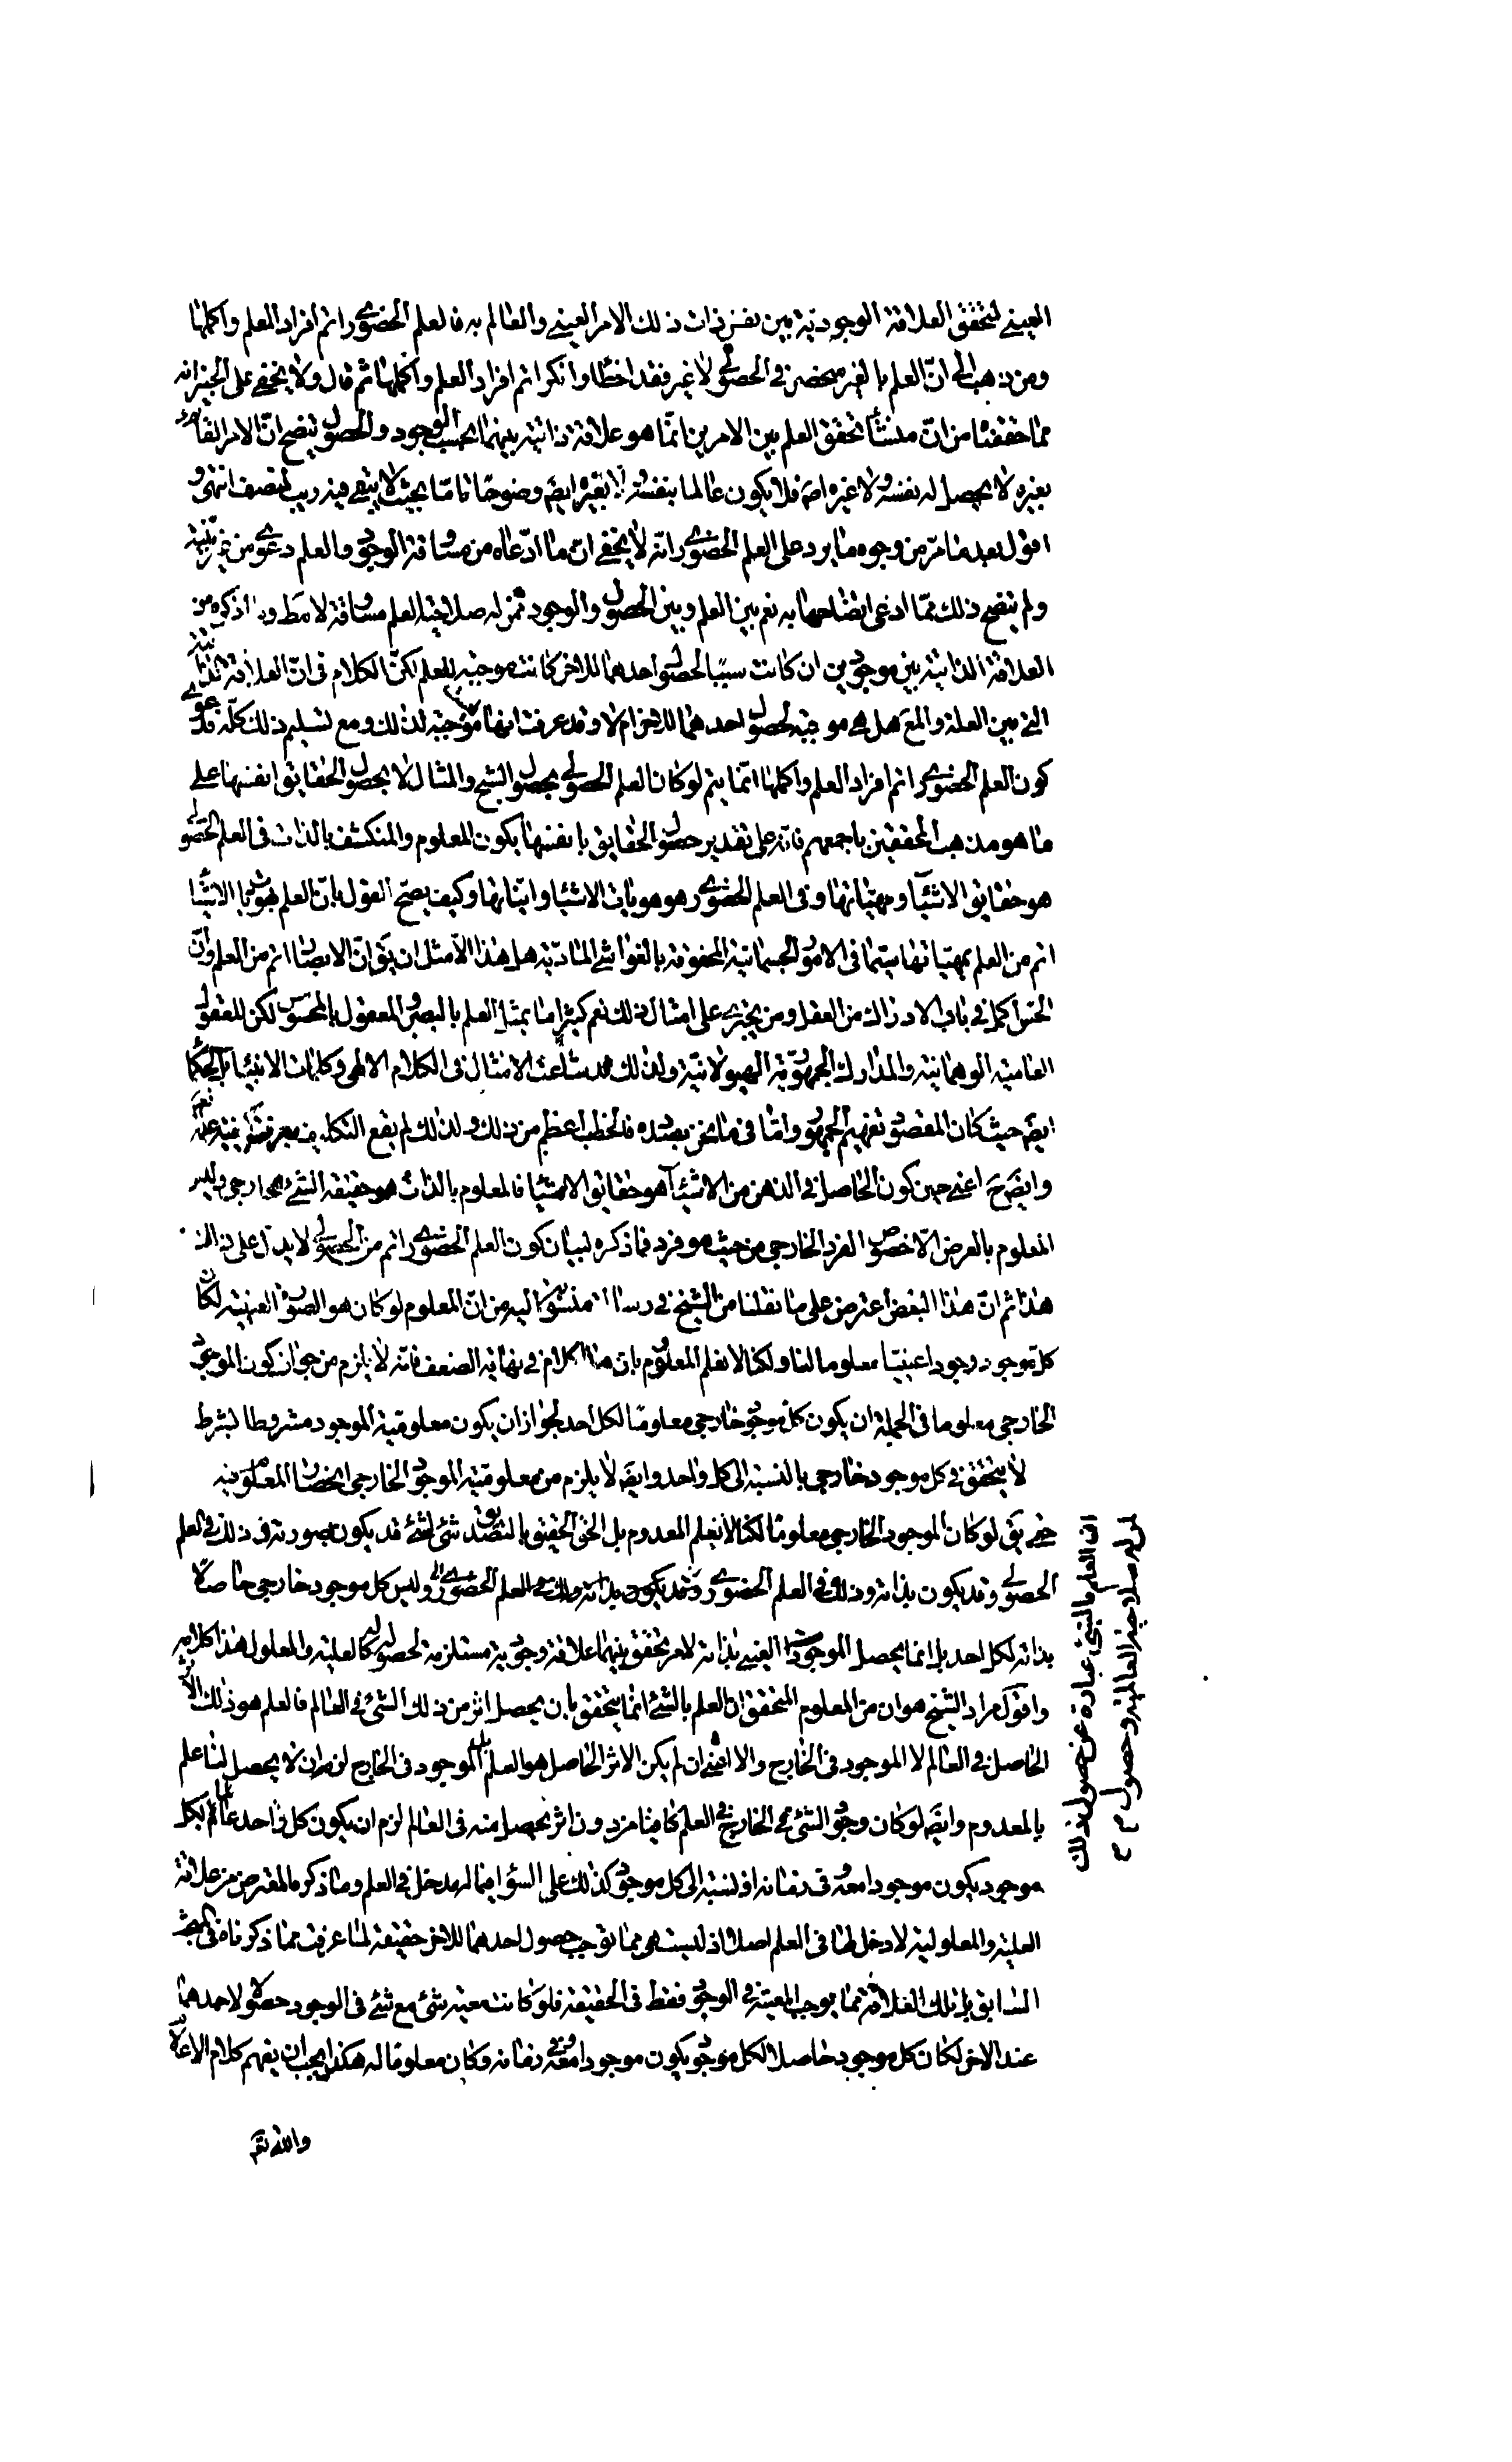 العينى لتحقق العلاقة الوجودية بين نفس ذات ذلك الامر العينى والعالم به فالعلم الحضورى اتم افراد العلم واكملها
ومن ذهب الى انّ العلم بالغير منحصر فى الحصولى لا غير فقد اخطا وانكر اتم افراد العلم واكملها ثم قال ولا يخفى على الخبير انه
مما حققنا من انّ منشأ تحقق العلم بين الامرين انّما هو علاقة ذاتية بينهما بحسب الوجود والحصول يتضح انّ الامر القائم
بغيره لا يحصل له نفسه ولا غيره اصم فلا يكون عالما بنفسه ولا بغيره ايضم وضوحا تامّا بحيث لا يبقى فيه ريب لمنصف انتهى و
اقول بعد ما مرّ من وجوه ما يرد على العلم الحضورى انّه لا يخفى انّ ما ادّعاه من مساوقة الوجود والعلم دعوى من غير بيّنة
ولم يتضح ذلك ممّا ادعى ايضاحها به نعم بين العلم وبين الحصول والوجود لمن له صلاحية العلم مساوقة لا مط وما ذكره من
العلاقة الذاتية بين موجودين ان كانت سببا لحصول احدهما للاخر كانت موجبة للعلم لكنّ الكلام فى انّ العلاقة الذاتية
التى بين العلة والمع هل هى موجبة لحصول احدهما للاخر ام لا وقد عرفت انها غير موجبة لذلك ومع تسليم ذلك كلّه فدعوى
كون العلم الحضورى اتم افراد العلم واكملها انّما يتم لو كان العلم الحصولى بحصول الشبح والمثال لا بحصول الحقايق انفسها على
ما هو مذهب المحققين باجمعهم فانّه على تقدير حصول الحقايق بانفسها يكون المعلوم والمنكشف بالذات فى العلم الحصولى
هو حقايق الاشيآء ومهيّاتها وفى العلم الحضورى هو هويات الاشيا وانيّاتها وكيف يصحّ القول بانّ العلم بهويات الاشيا
اتم من العلم بمهيّاتها سيّما فى الامور الجسمانية المحفوفة بالغواشى المادّية هل هذا الّا مثل ان يق انّ الابصار اتم من العلم وانّ
الحسّ اكمل فى باب الادراك من العقل ومن يجترى على امثال ذلك نعم كثيرا ما يمثل العلم بالبصر والمعقول بالمحسوس لكن للعقول
العامية الوهمانية والمدارك الجمهورية الهيولانيّة ولذلك قد شاعت الامثال فى الكلام الالهى وكلمات الانبيا والحكما
ايضم حيث كان المقصود تفهيم الجمهور وامّا فى ما نحن بصدده فالخطب اعظم من ذلك ولذلك لم يقع التكليف بمعرفته
وايضم ح اعنى حين كون الحاصل فى الذهن من الاشيآء هو حقايق الاشيا فالمعلوم بالذات هو حقيقة الشىء الخارجى وليس
المعلوم بالعرض الّا خصوص الفرد الخارجى من حيث هو فرد فما ذكره لبيان كون العلم الحضورى اتم من الحصولى لا يدل على ذلك
هذا ثم انّ هذا البعض اعترض على ما نقلنا من الشيخ فى رسالة منسوبة اليه من انّ المعلوم لو كان هو الصورة العينية لكان
كلّ موجود وجودا عينيّا معلوما لنا ولكنا لا نعلم المعدوم بان هذا الكلام فى نهاية الضعف فانّه لا يلزم من جواز كون الموجود
الخارجى معلوما فى الجملة ان يكون كل موجود خارجى معلوما لكل احد لجواز ان يكون معلومية الموجود مشروطا بشرط
لا يتحقق فى كل موجود خارجى بالنسبة الى كل واحد وايضم لا يلزم من معلومية الموجود الخارجى انحصار المعلومية فيه
حتى يق لو كان الموجود الخارجى معلوما لكنا لا نعلم المعدوم بل الحق الحقيق بالتصديق شىء لشىء قد يكون بصورته وذلك فى العلم
الحصولى وقد يكون بذاته وذلك فى العلم الحضورى وليس كل موجود خارجى حاصلًا
بذاته لكل احد بل انما يحصل الموجود العينى بذاته لامر يتحقق بينهما علاقة وجودية مستلزمة لحصوله له كالعلية والمعلول هذا كلامه
واقول مراد الشيخ هو ان من المعلوم المتحقق انّ العلم بالشىء انّما يتحقق بان يحصل اثر من ذلك الشىء فى العالم فالعلم هو ذلك الاثر
الحاصل فى العالم لا الموجود فى الخارج والا اعنى ان لم يكن الاثر الحاصل هو العلم بل الموجود فى الخارج لزم ان لا يحصل لنا علم
بالمعدوم وايضم لو كان وجود الشىء فى الخارج فى العلم كافيا من دون اثر يحصل منه فى العالم لزم ان يكون كل واحد عالما بكل
موجود يكون موجودا معه فى زمانه اذ نسبته الى كل موجود كذلك على السوا فيما له مدخل فى العلم وما ذكره المعترض من علاقة
العلية والمعلولية لا دخل لها فى العلم اصلا اذ ليست هى مما توجب حصول احدهما للاخر حقيقة لما عرفت مما ذكرناه فى المبحث
السابق بل تلك العلاقة مما يوجب المعية فى الوجود فقط فى الحقيقة فلو كانت معية شىء مع شىء فى الوجود حصولا لاحدهما
عند الاخر لكان كل موجود حاصلا لكل موجود يكون موجودا معه فى زمانه وكان معلوما له هكذا يجب ان يفهم كلام الاعلام
والله تعم
ان العلم بالشىء عبارة عن حصول ذلك
لمن له صلاحية العالمية وحصول م م ع